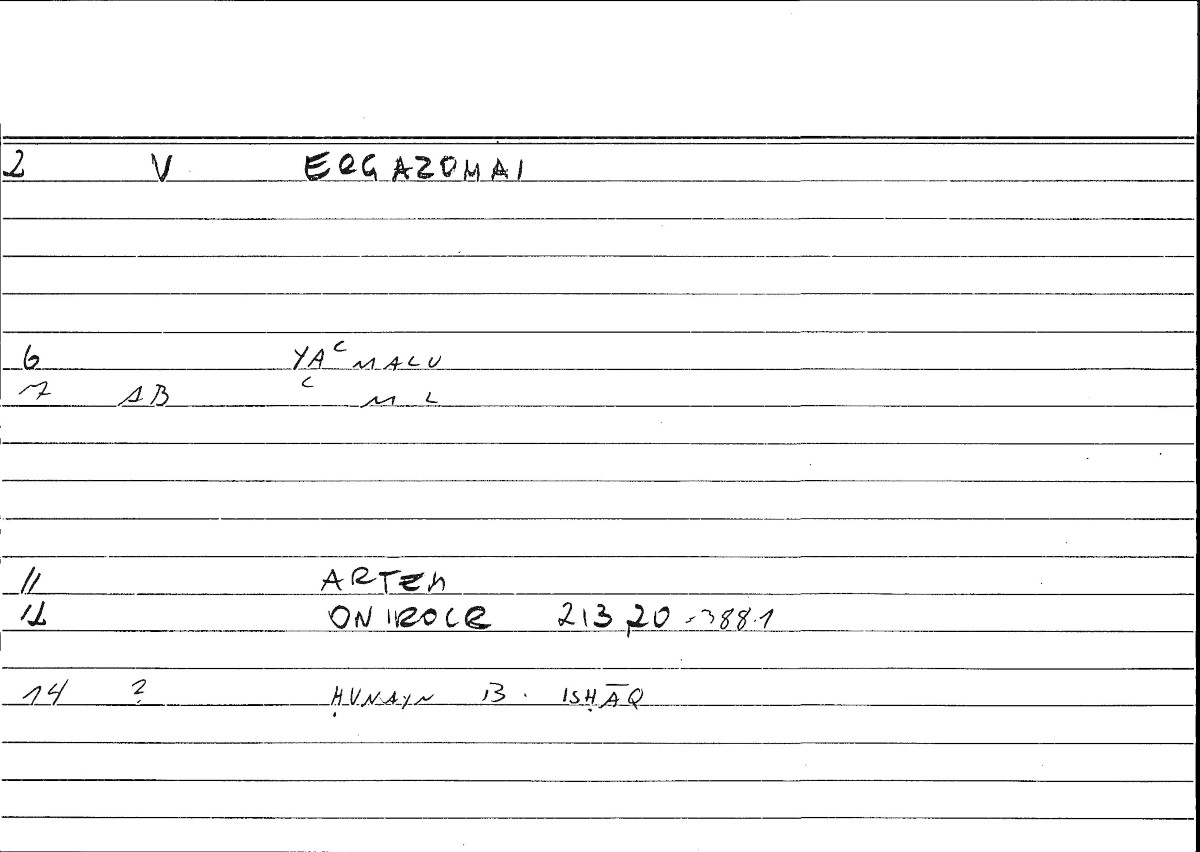 2 V ERGAZOMAI
6 YAᶜMALU
7 AB ᶜ M L
11 ARTEM
12 ONIROCR 213,20 = 388.1
14 ? ḤUNAYN B. ISḤĀQ